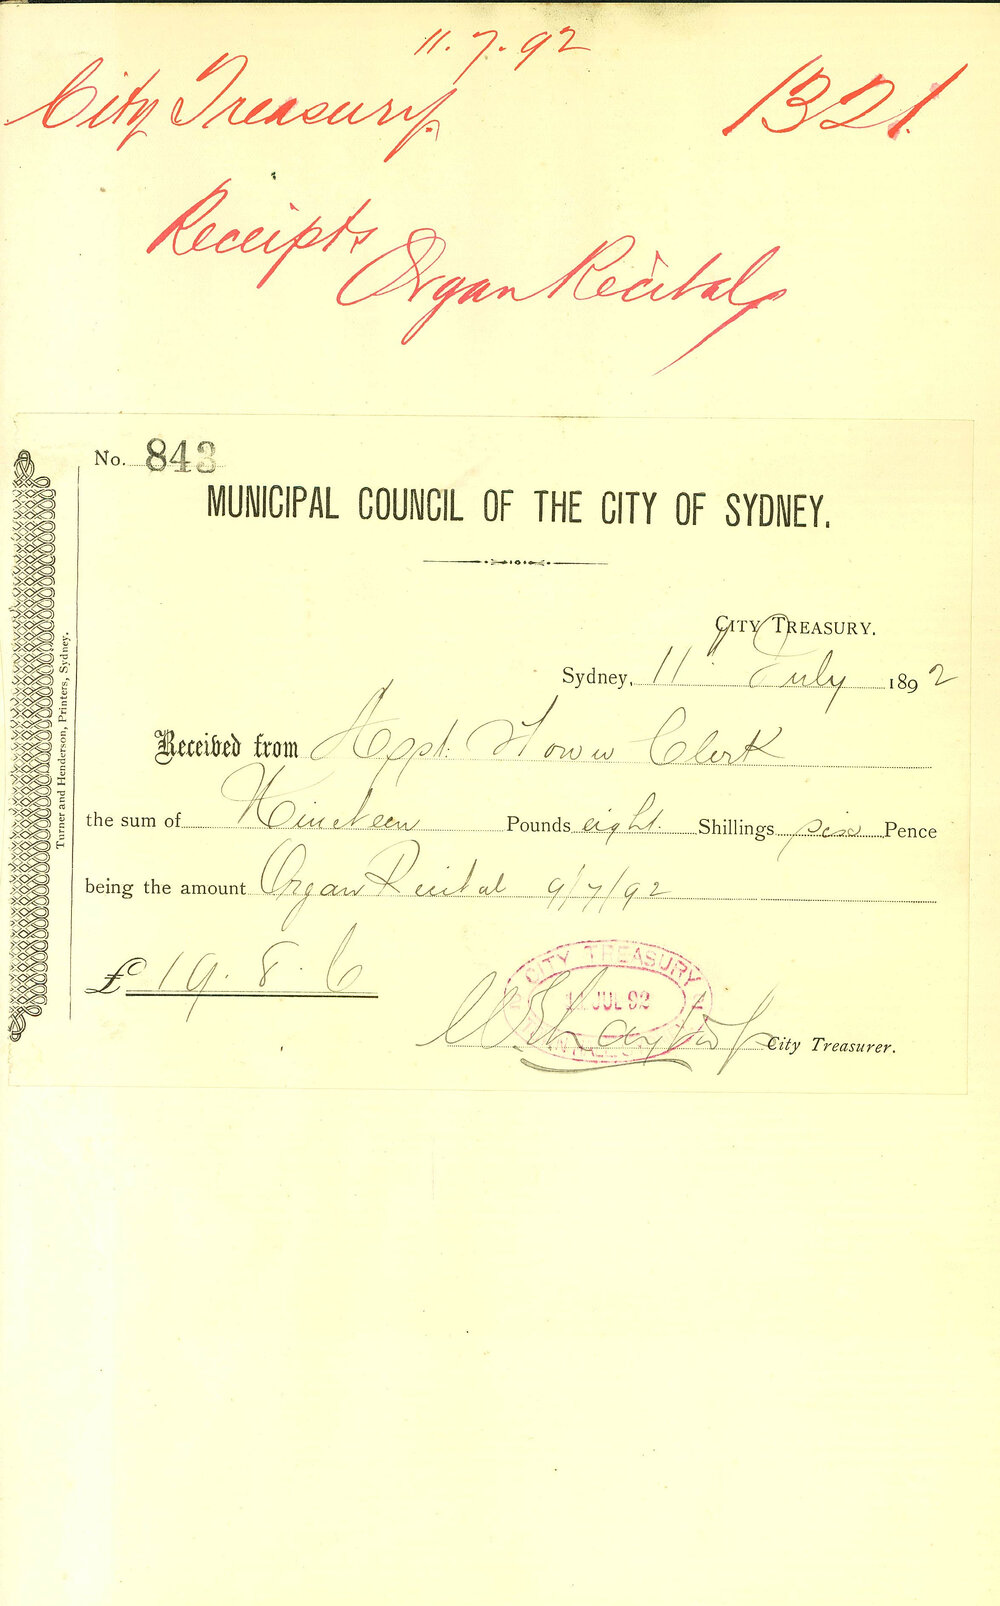 11.7.92
City Treasury.
1321.
Receipts
Organ Recital
No. 843
MUNICIPAL COUNCIL OF THE CITY OF SYDNEY.
CITY TREASURY.
Sydney, 11 July 1892
Received from Town Clerk
the sum of Nineteen Pounds eight Shillings six Pence
being the amount Organ Recital 9/7/92
£19.8.6
CITY TREASURY
11 JUL 92
City Treasurer.
Turner and Henderson, Printers, Sydney.